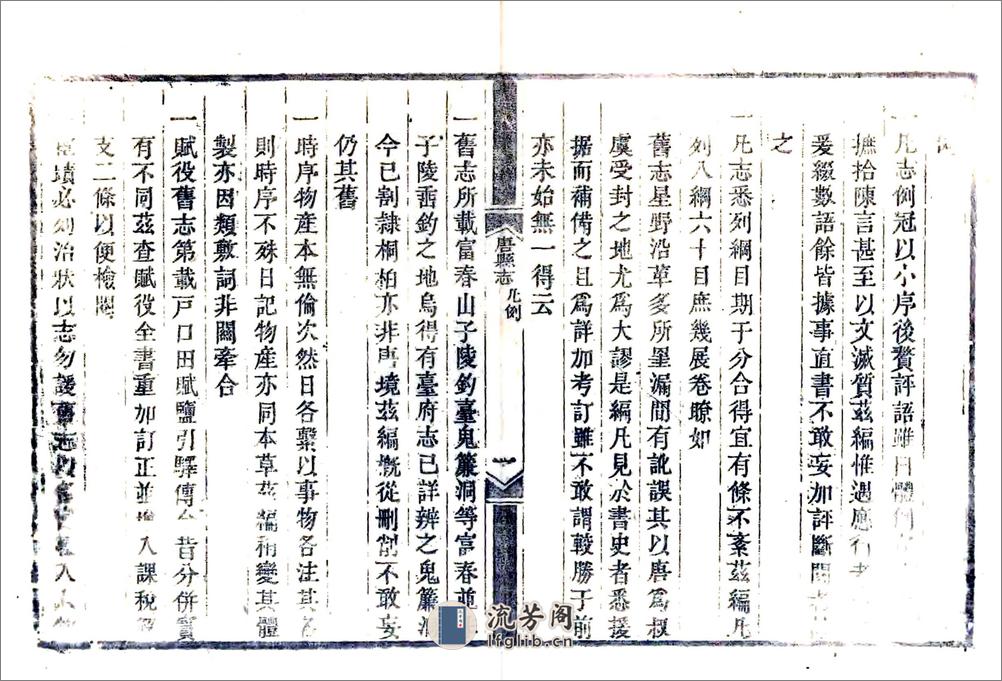 例
凡志例冠以小序後贅評語雖曰體例
摭拾陳言甚至以文滅質茲編惟遇應行考
爰綴數語餘皆據事直書不敢妄加評斷閱者
之
一凡志悉列綱目期于分合得宜有條不紊茲編凡
列八綱六十目庶幾展卷瞭如
舊志星野沿革多所罣漏間有訛誤其以唐為叔
虞受封之地尤為大謬是編凡見於書史者悉援
据而補備之且為詳加考訂雖不敢謂較勝于前
亦未始無一得云
唐縣志
凡例
一
一舊志所載富春山子陵釣臺鬼簾洞等富春並
子陵垂釣之地烏得有臺府志已詳辨之鬼簾洞
今已割隸桐柏亦非唐境茲編概從刪削不敢妄
仍其舊
一時序物產本無倫次然日各繫以事物各注其名
則時序不殊日記物產亦同本草茲編稍變其體
製亦因類敷詞非關牽合
一賦役舊志第載戶口田賦鹽引驛傳今昔分併實
有不同茲查賦役全書重加訂正並增入課稅
支二條以便檢閱
績必列治狀以志勿諼舊志以
入
流芳阁
lfglib.cn